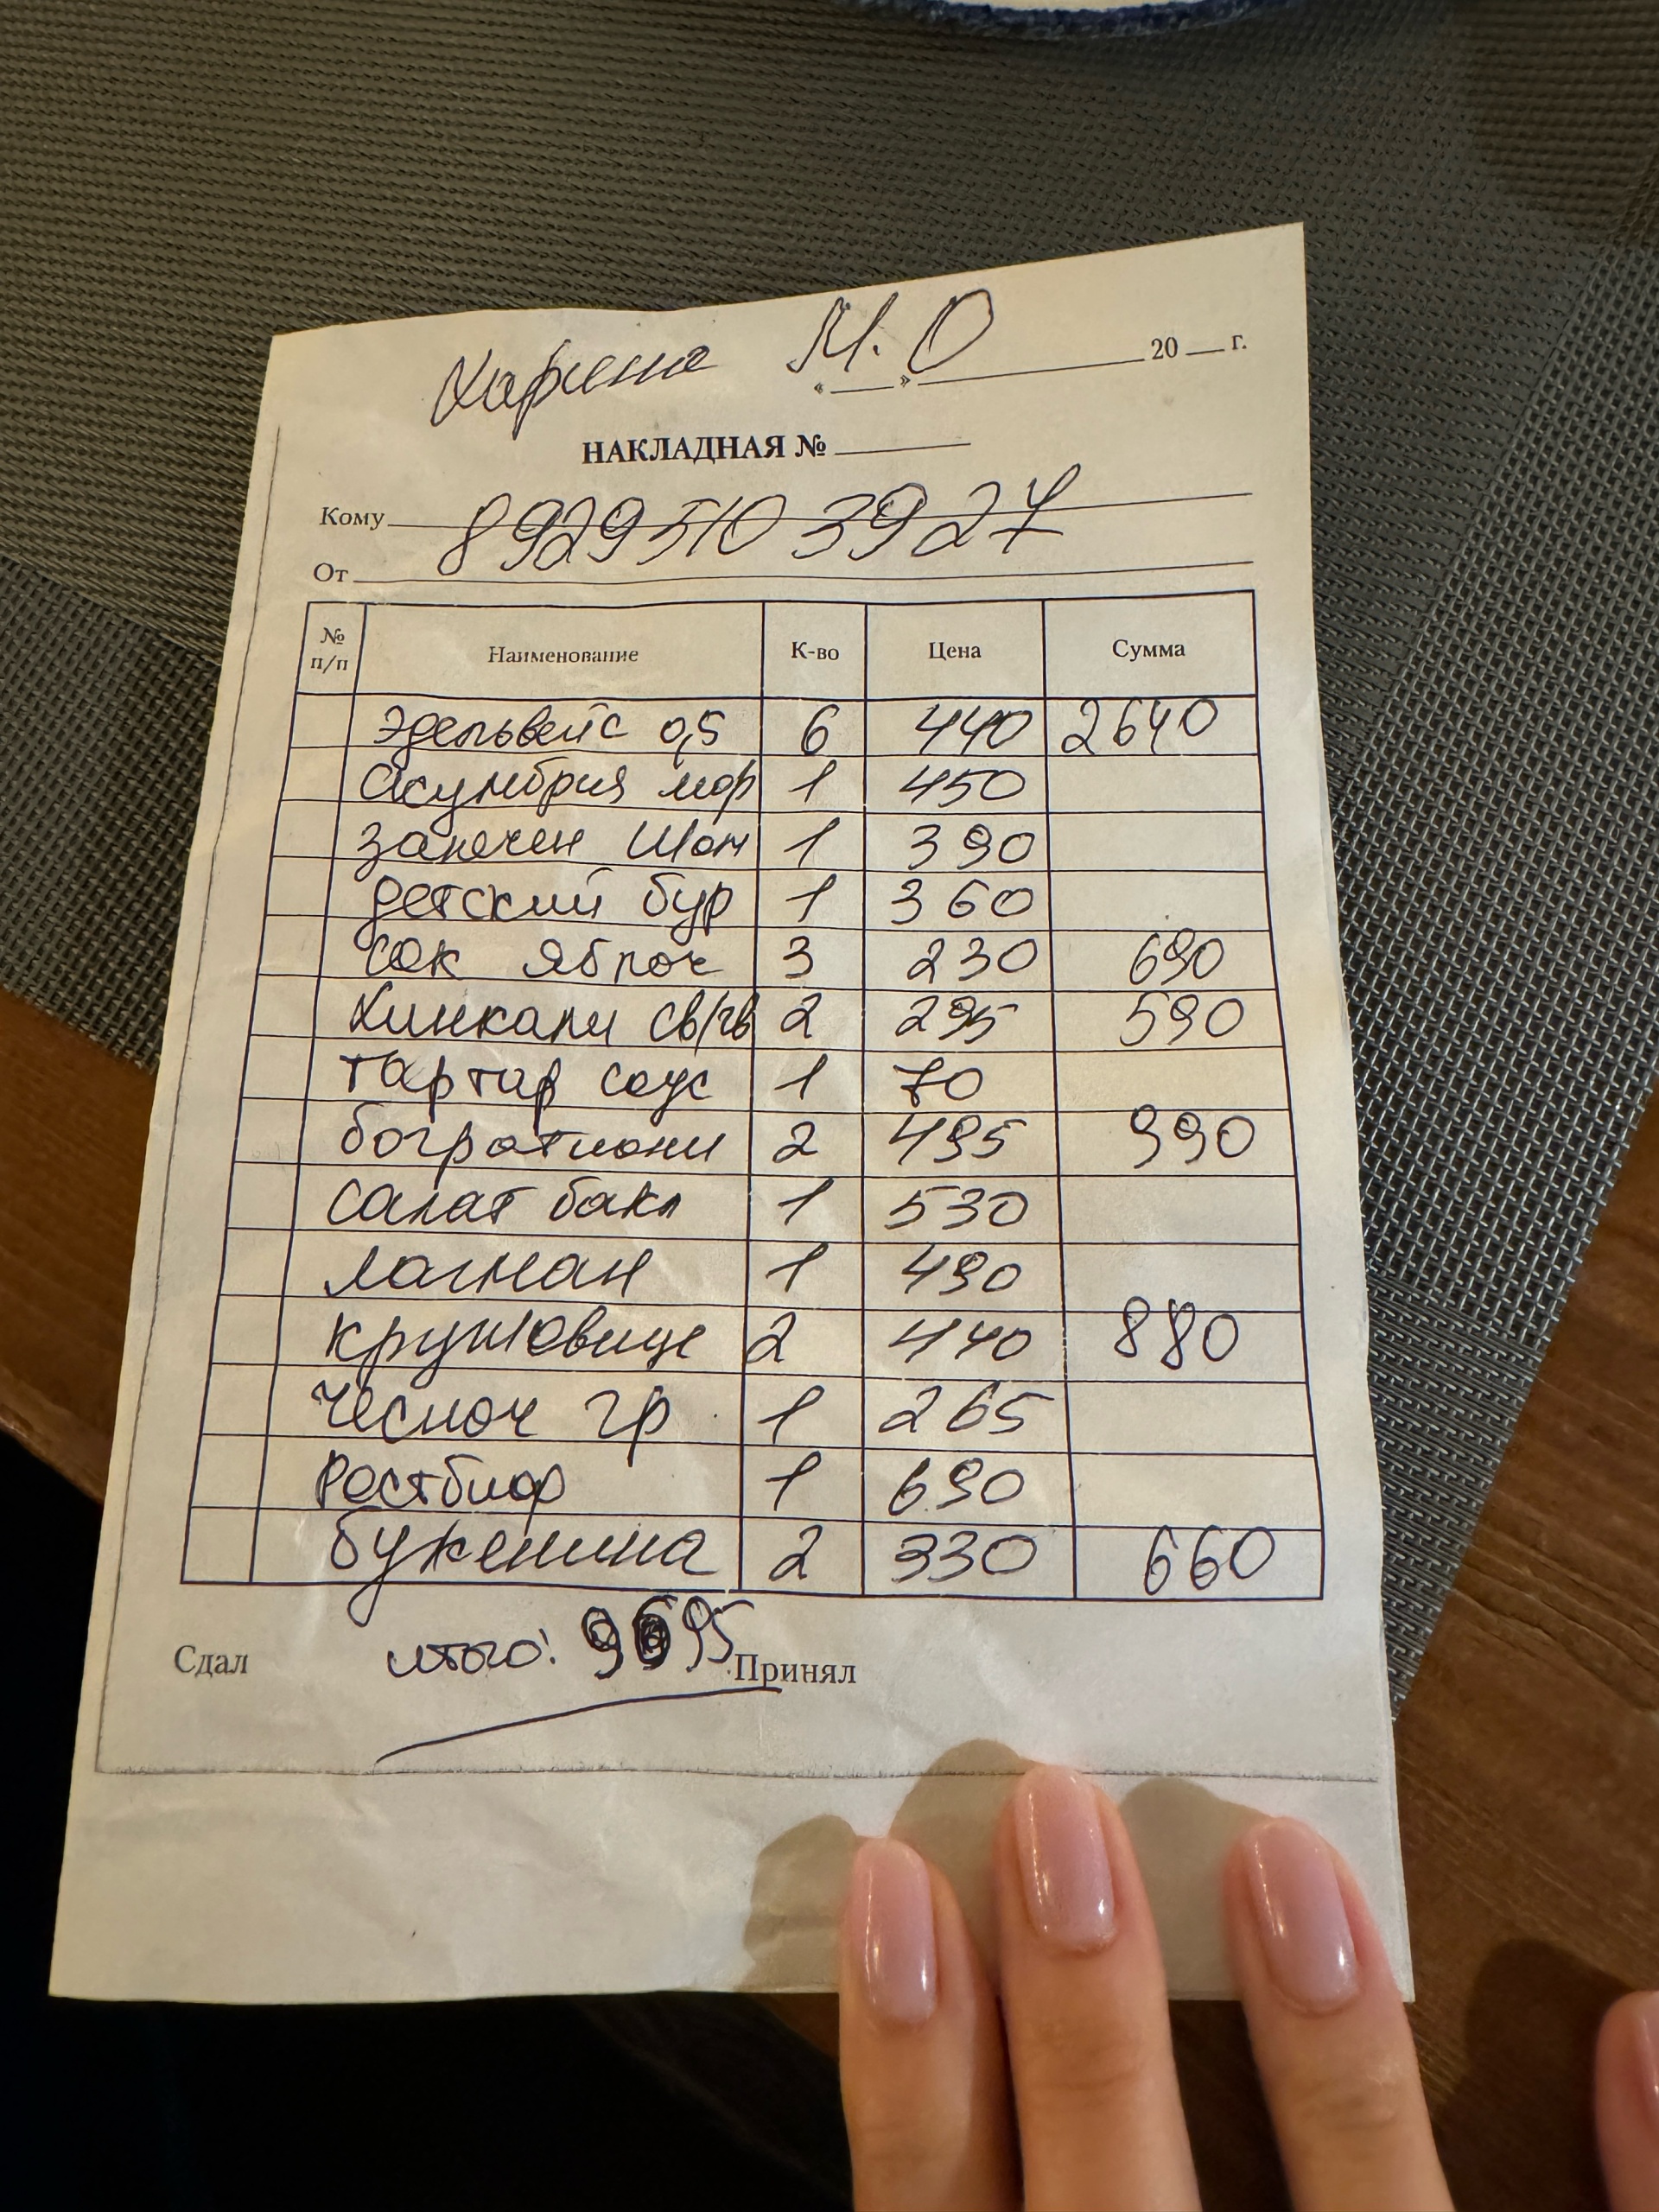 Карина М.О
« » 20 г.
НАКЛАДНАЯ №
Кому 8929510 3927
От
№ п/п Наименование К-во Цена Сумма
Эдельвейс 0,5 6 440 2640
Скумбрия мор 1 450
Запечен Шам 1 390
детский бур 1 360
Сок яблоч 3 230 690
Хинкали св/гв 2 295 590
тартар соус 1 70
багратиони 2 495 990
Салат бакл 1 530
лагман 1 490
крушовице 2 440 880
Чесноч гр 1 265
Ростбиф 1 690
буженина 2 330 660
итого: 9695
Сдал Принял